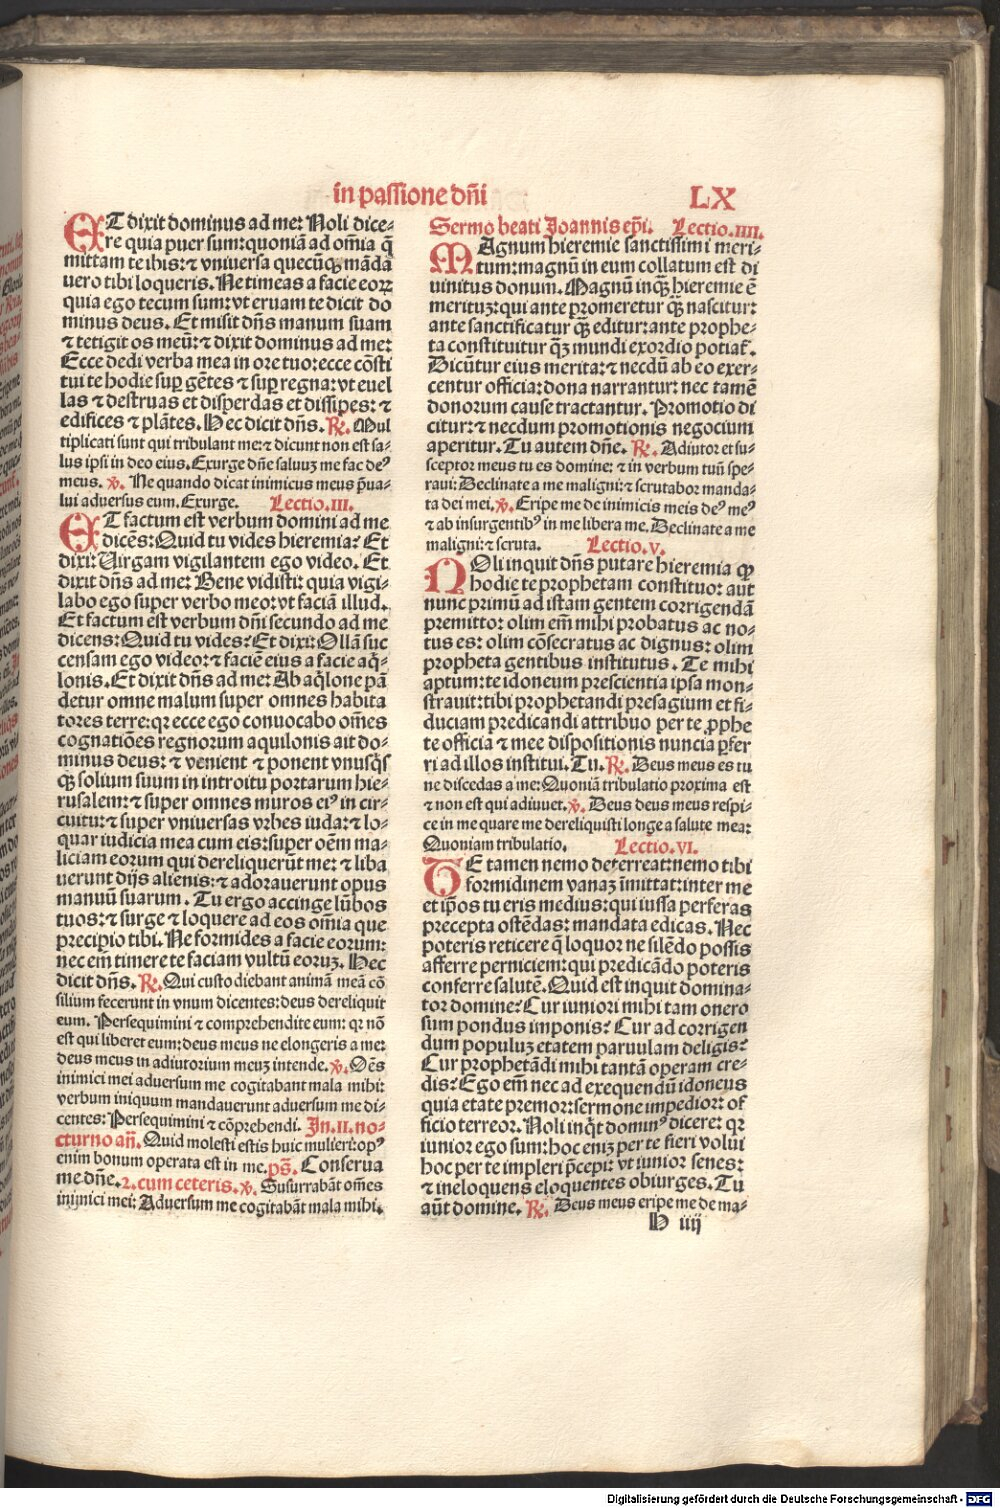 in passione dñi
LX
ET dixit dominus ad me: Noli dice-
re quia puer sum: quoniã ad om̃ia q̃
mittam te ibis: ⁊ vniversa quecũq; mãda
uero tibi loqueris. Ne timeas a facie eorꝝ
quia ego tecum sum: vt eruam te dicit do
minus deus. Et misit dñs manum suam
⁊ tetigit os meũ: ⁊ dixit dominus ad me:
Ecce dedi verba mea in ore tuo: ecce cõsti
tui te hodie suꝑ gẽtes ⁊ suꝑ regna: vt euel
las ⁊ destruas et disperdas et dissipes: ⁊
edifices ⁊ plãtes. Hec dicit dñs. ℟. Mul
tiplicati sunt qui tribulant me: ⁊ dicunt non est sa-
lus ipsi in deo eius. Exurge dñe saluuʒ me fac deꝰ
meus. ℣. Ne quando dicat inimicus meus p̃ua-
lui adversus eum. Exurge. Lectio. III.
ET factum est verbum domini ad me
dicẽs: Quid tu vides hieremia? Et
dixi: Virgam vigilantem ego video. Et
dixit dñs ad me: Bene vidisti: quia vigi-
labo ego super verbo meo: vt faciã illud.
Et factum est verbum dñi secundo ad me
dicens: Quid tu vides? Et dixi: Ollã suc
censam ego video: ⁊ faciẽ eius a facie aq̃-
lonis. Et dixit dñs ad me: Ab aq̃lone pã
detur omne malum super omnes habita
tores terre: qꝛ ecce ego conuocabo om̃es
cognatiões regnorum aquilonis ait do-
minus deus: ⁊ venient ⁊ ponent vnusq̃s
q̃ solium suum in introitu portarum hie-
rusalem: ⁊ super omnes muros eiꝰ in cir-
cuitu: ⁊ super vniversas vrbes iuda: ⁊ lo-
quar iudicia mea cum eis: super oẽm ma-
liciam eorum qui dereliquerũt me: ⁊ liba
uerunt dijs alienis: ⁊ adorauerunt opus
manuũ suarum. Tu ergo accinge lũbos
tuos: ⁊ surge ⁊ loquere ad eos om̃ia que
precipio tibi. Ne formides a facie eorum:
nec em̃ timere te faciam vultũ eoruʒ. Hec
dicit dñs. ℟. Qui custodiebant animã meã cõ
silium fecerunt in vnum dicentes: deus dereliquit
eum. Persequimini ⁊ comprehendite eum: qꝛ nõ
est qui liberet eum: deus meus ne elongeris a me:
deus meus in adiutorium meuʒ intende. ℣. Oẽs
inimici mei adversum me cogitabant mala mihi:
verbum iniquum mandauerunt adversum me di-
centes: Persequimini ⁊ cõprehendi. In. II. no-
cturno añ. Quid molesti estis huic mulieri: opꝰ
enim bonum operata est in me. pš. Conserua
me dñe. 2. cum ceteris. ℣. Susurrabãt om̃es
inimici mei: Adversum me cogitabãt mala mihi.
Sermo beati Joannis ep̃i. Lectio. IIII.
MAgnum hieremie sanctissimi meri-
tum: magnũ in eum collatum est di
uinitus donum. Magnũ inq̃ hieremie ẽ
merituʒ: qui ante promeretur q̃ nascitur:
ante sanctificatur q̃ editur: ante prophe-
ta constituitur q̃ʒ mundi exordio potiat̃.
Dicũtur eius merita: ⁊ necdũ ab eo exer-
centur officia: dona narrantur: nec tamẽ
donorum cause tractantur. Promotio di
citur: ⁊ necdum promotionis negocium
aperitur. Tu autem dñe. ℟. Adiutor et su-
sceptor meus tu es domine: ⁊ in verbum tuũ spe-
raui: Declinate a me maligni: ⁊ scrutabor manda-
ta dei mei. ℣. Eripe me de inimicis meis deꝰ meꝰ
⁊ ab insurgentibꝰ in me libera me. Declinate a me
maligni: ⁊ scruta. Lectio. V.
NOli inquit dñs putare hieremia ꝙ
hodie te prophetam constituo: aut
nunc primũ ad istam gentem corrigendã
premitto: olim em̃ mihi probatus ac no-
tus es: olim cõsecratus ac dignus: olim
propheta gentibus institutus. Te mihi
aptum: te idoneum prescientia ipsa mon-
strauit: tibi prophetandi presagium et fi-
duciam predicandi attribuo per te ꝓphe
te officia ⁊ mee dispositionis nuncia ꝑfer
ri ad illos institui. Tu. ℟. Deus meus es tu
ne discedas a me: Quoniã tribulatio proxima est
⁊ non est qui adiuuet. ℣. Deus deus meus respi-
ce in me quare me dereliquisti longe a salute mea:
Quoniam tribulatio. Lectio. VI.
TE tamen nemo deterreat: nemo tibi
formidinem vanaʒ ĩmittat: inter me
et ip̃os tu eris medius: qui iussa perferas
precepta ostẽdas: mandata edicas. Nec
poteris reticere q̃ loquor ne silẽdo possis
afferre perniciem: qui predicãdo poteris
conferre salutẽ. Quid est inquit domina-
tor domine? Cur iuniori mihi tam onero
sum pondus imponis? Cur ad corrigen
dum populuʒ etatem paruulam deligis?
Cur prophetãdi mihi tantã operam cre-
dis? Ego em̃ nec ad exequendũ idoneus
quia etate premor: sermone impedior: of
ficio terreor. Noli inq̃t dominꝰ dicere: qꝛ
iunior ego sum: hoc enĩʒ per te fieri volui
hoc per te impleri p̃cepi: vt iunior senes:
⁊ ineloquens eloquentes obiurges. Tu
aũt domine. ℟. Deus meus eripe me de ma-
H iiij
Digitalisierung gefördert durch die Deutsche Forschungsgemeinschaft - DFG